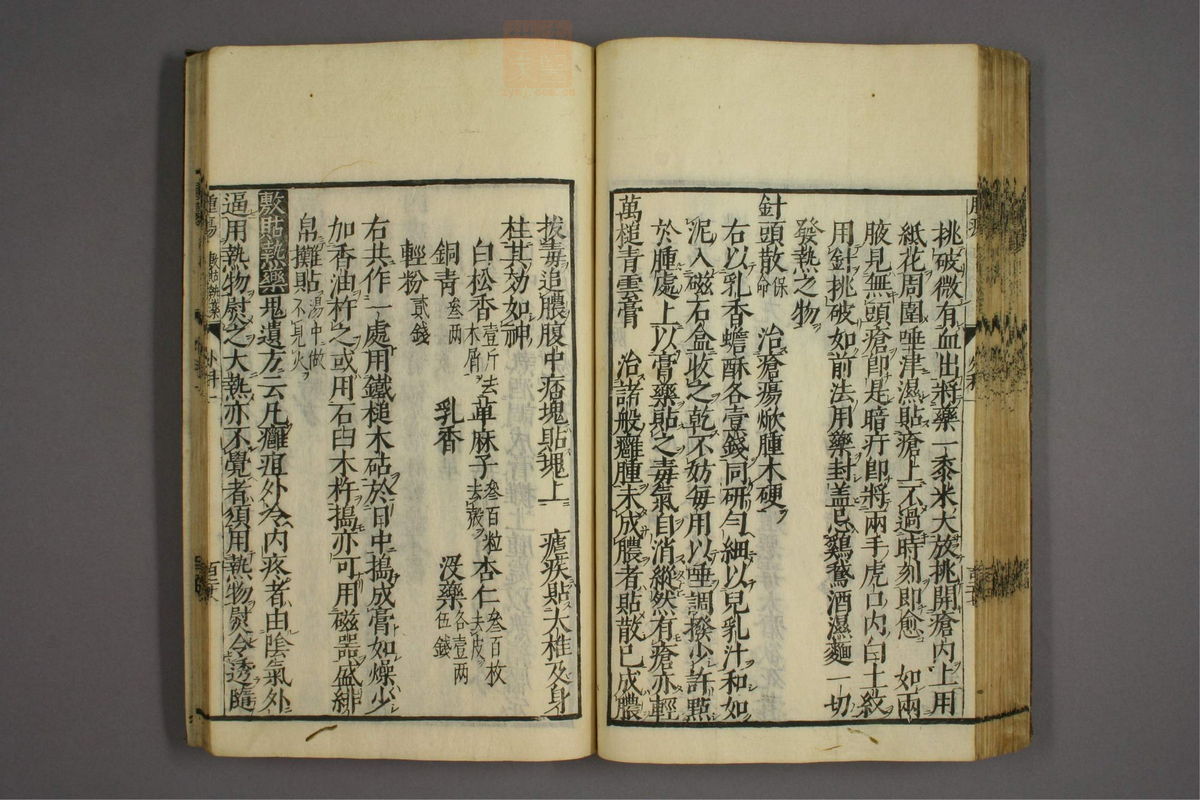 挑破微有血出將藥一黍米大放挑開瘡內上用
紙花周圍唾津濕貼瘡上不過時刻即愈 如兩
腋見無頭瘡即是暗疔即將兩手虎口內白土紋
用針挑破如前法用藥封盖忌鷄鵞酒濕麵一切
發熱之物
針頭散保命 治瘡瘍焮腫木硬
右以乳香蟾酥各壹錢同研勻細以兒乳汁和如
泥入磁石盒收之乾不妨每用以唾調撥少許㸃
於腫處上以膏藥貼之毒氣自消縱然有瘡亦輕
萬槌青雲膏 治諸般癰腫未成膿者貼散已成膿
拔毒追膿腹中痞塊貼塊上 瘧疾貼大椎及身
柱其効如神
白松香壹斤去木屑 萆麻子叁百粒去殼 杏仁叁百枚去皮
銅青叁兩 乳香 沒藥各壹兩伍錢
輕粉貳錢
右共作一處用鐵槌木砧於日中搗成膏如燥少
加香油杵之或用石臼木杵搗亦可用磁器盛緋
帛攤貼湯中做不見火
敷貼熱藥 鬼遺方云凡癰疽外冷內疼者由陰氣外
逼用熱物熨之大熱亦不覺者須用熱物熨令透隨
腫瘍 敷貼熱藥 外科一